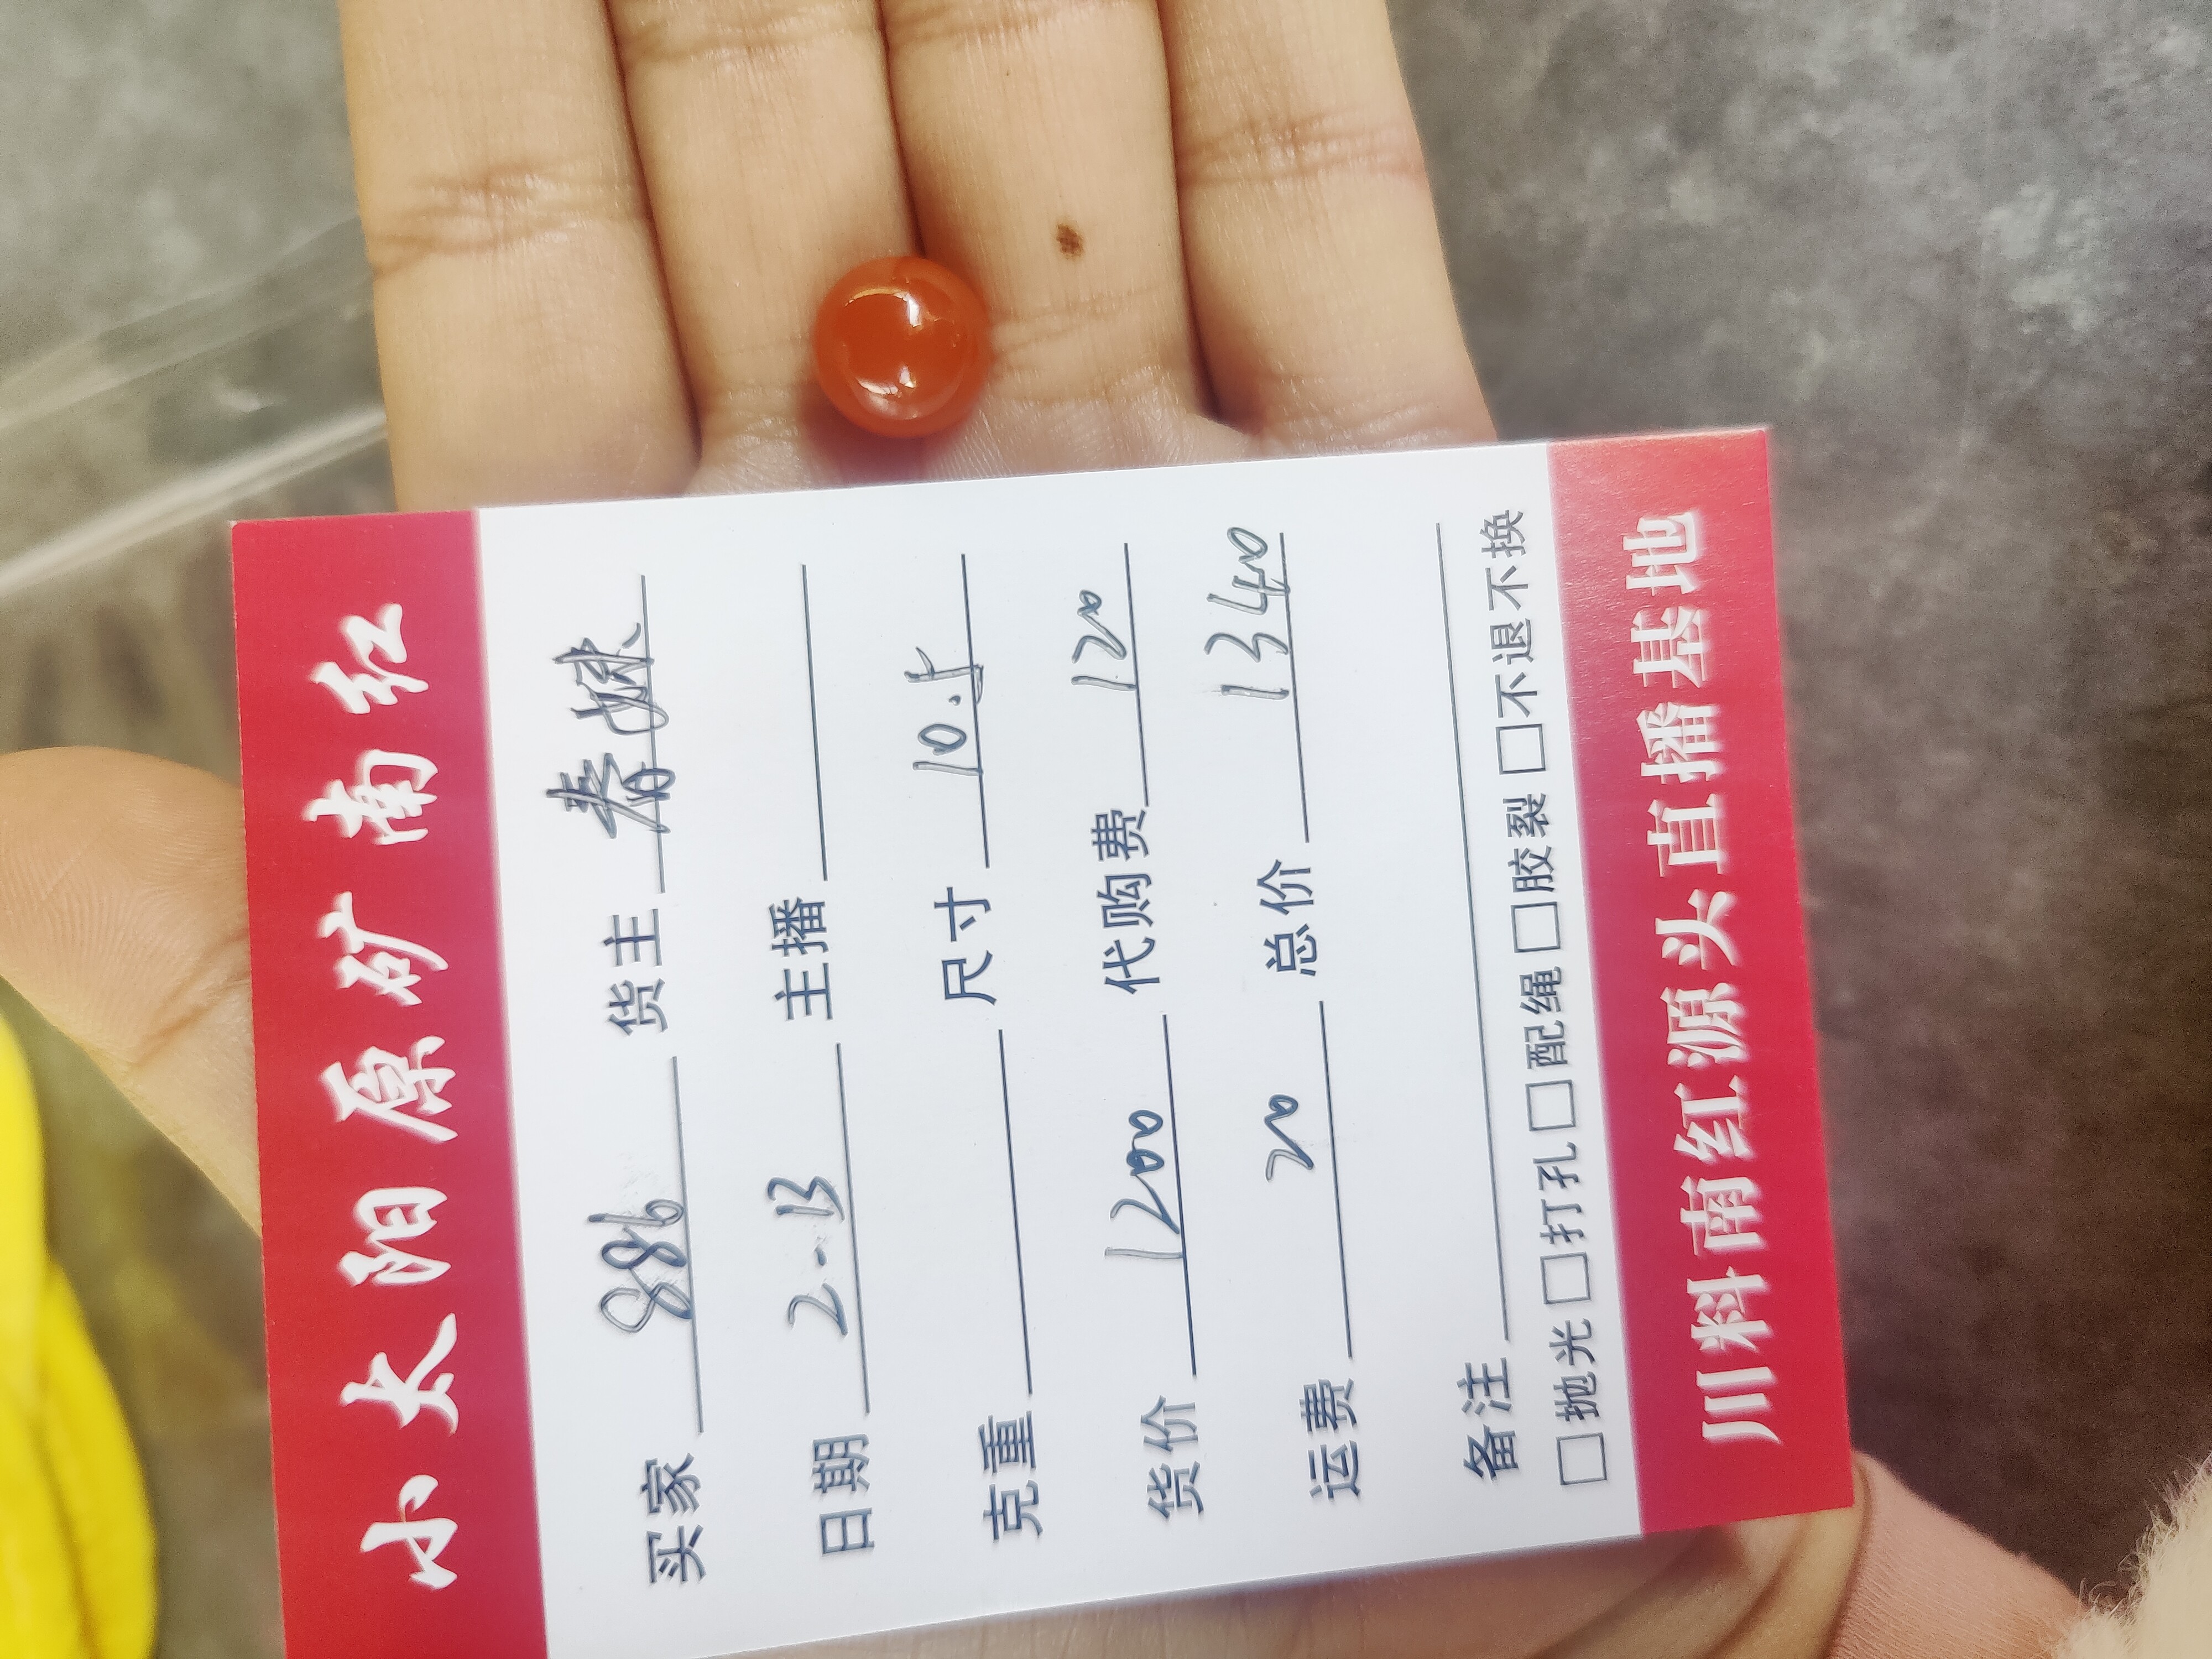 小太阳原矿南红
买家 886 货主 春妹
日期 2-13 主播
克重 尺寸 10.5
货价 1200 代购费 120
运费 20 总价 1340
备注
□抛光□打孔□配绳□胶裂□不退不换
川料南红源头直播基地